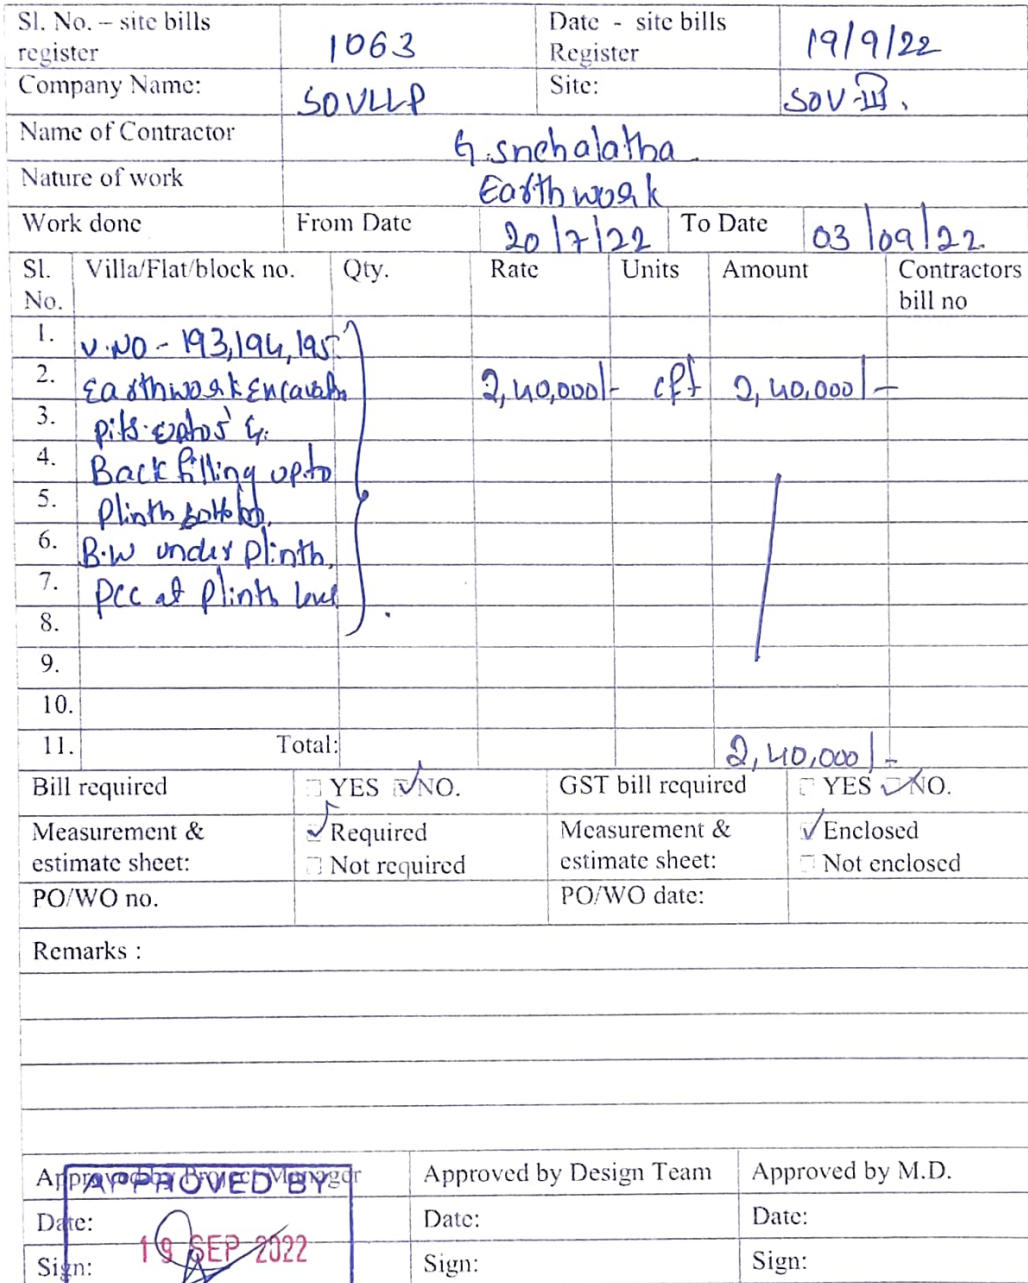 Sl. No. – site bills register 1063 Date - site bills Register 19/9/22
Company Name: SOVLLP Site: SOV-III.
Name of Contractor G.snehalatha
Nature of work Earthwork
Work done From Date 20/7/22 To Date 03/09/22
Sl. No. Villa/Flat/block no. Qty. Rate Units Amount Contractors bill no
1. V.NO - 193,194,195.
2. Earthwork 2,40,000/- cft 2,40,000/-
3. pits
4. Back filling upto
5. Plinth
6. B.W under plinth,
7. PCC at plinth level
8.
9.
10.
11. Total: 2,40,000/-
Bill required YES NO. GST bill required YES NO.
Measurement & estimate sheet: Required Measurement & estimate sheet: Enclosed
Not required Not enclosed
PO/WO no. PO/WO date:
Remarks :
Approved by Project Manager Approved by Design Team Approved by M.D.
APPROVED BY
Date: Date: Date:
19 SEP 2022
Sign: Sign: Sign: